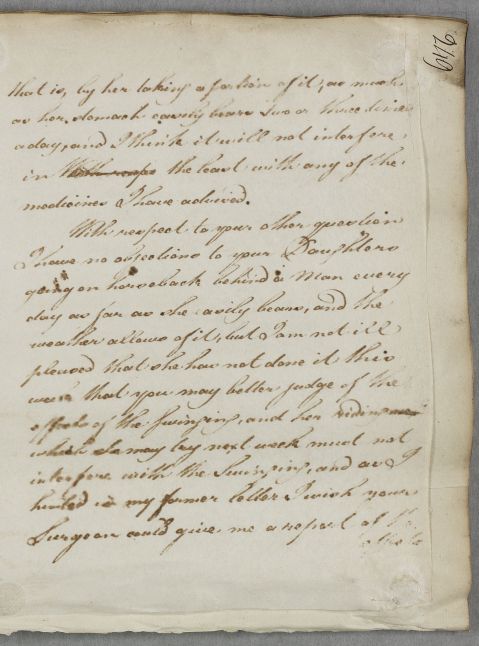 646
that is, by her taking a portion of it, as much
as her stomach easily bears two or three times
a day, and I think it will not interfere
in the least with any of the
medicines I have advised.
With respect to your other question
I have no objections to your Daughters
going on horseback behind a Man every
day as far as she easily bears, and the
weather allows of it; but I am not ill
pleased that she has not done it this
week that you may better judge of the
effects of the Swinging, and her riding
which she may try next week must not
interfere with the Swinging, and as I
hinted in my former letter I wish your
Surgeon could give me a report of the